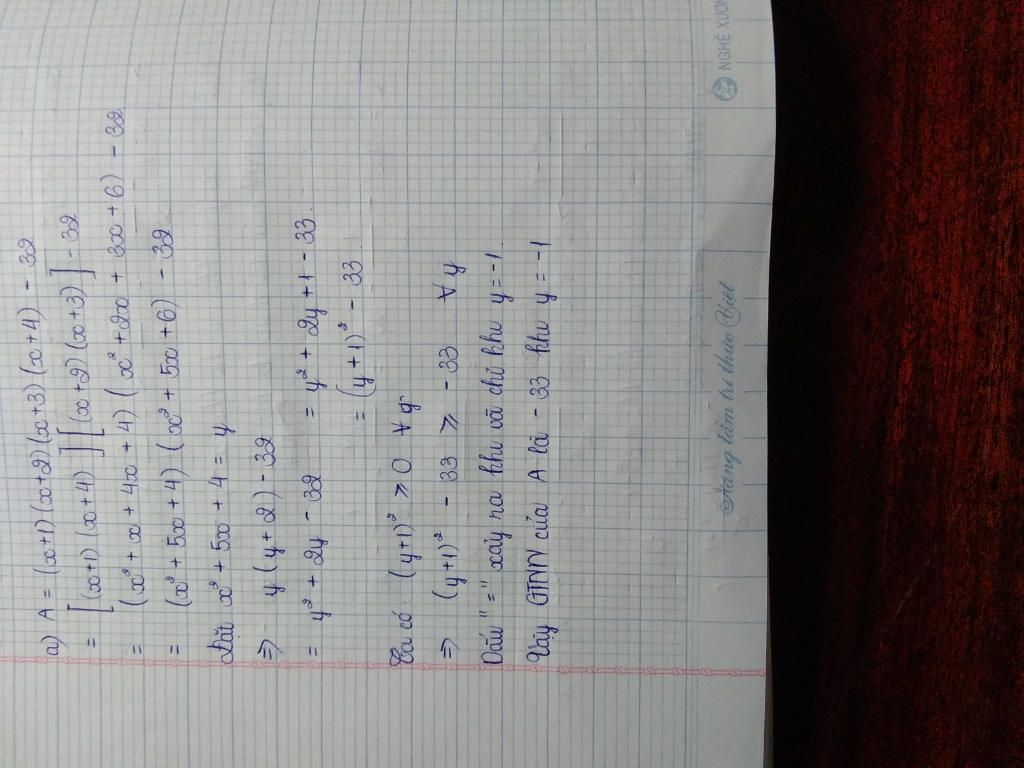 a) A = (x+1)(x+2)(x+3)(x+4) - 32
= [(x+1)(x+4)][(x+2)(x+3)] - 32
= (x² + x + 4x + 4)(x² + 2x + 3x + 6) - 32
= (x² + 5x + 4)(x² + 5x + 6) - 32
Đặt x² + 5x + 4 = y
⇒ y(y + 2) - 32
= y² + 2y - 32 = y² + 2y + 1 - 33.
= (y + 1)² - 33
Ta có (y+1)² ⩾ 0 ∀y
⇒ (y + 1)² - 33 ⩾ - 33 ∀y
Dấu "=" xảy ra khi và chỉ khi y = -1.
Vậy GTNN của A là - 33 khi y = -1
Nâng tầm tri thức Việt
NGHÊ XUÂN